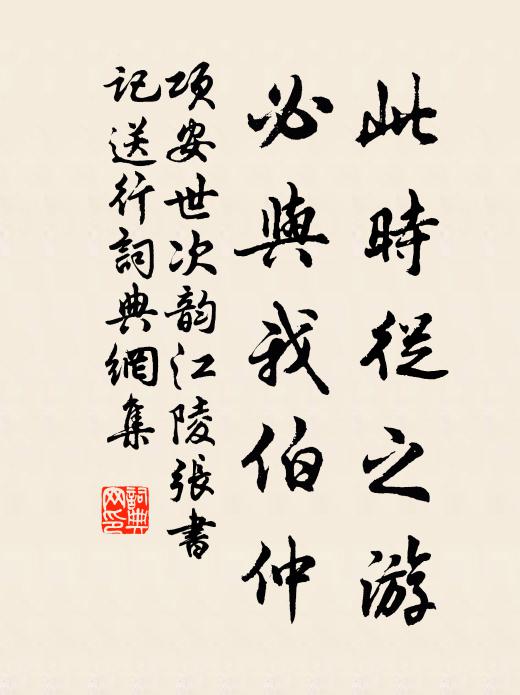 此時從之游
必與我伯仲
項安世次韵江陵張書
記送行詞典網集
詞典
网印